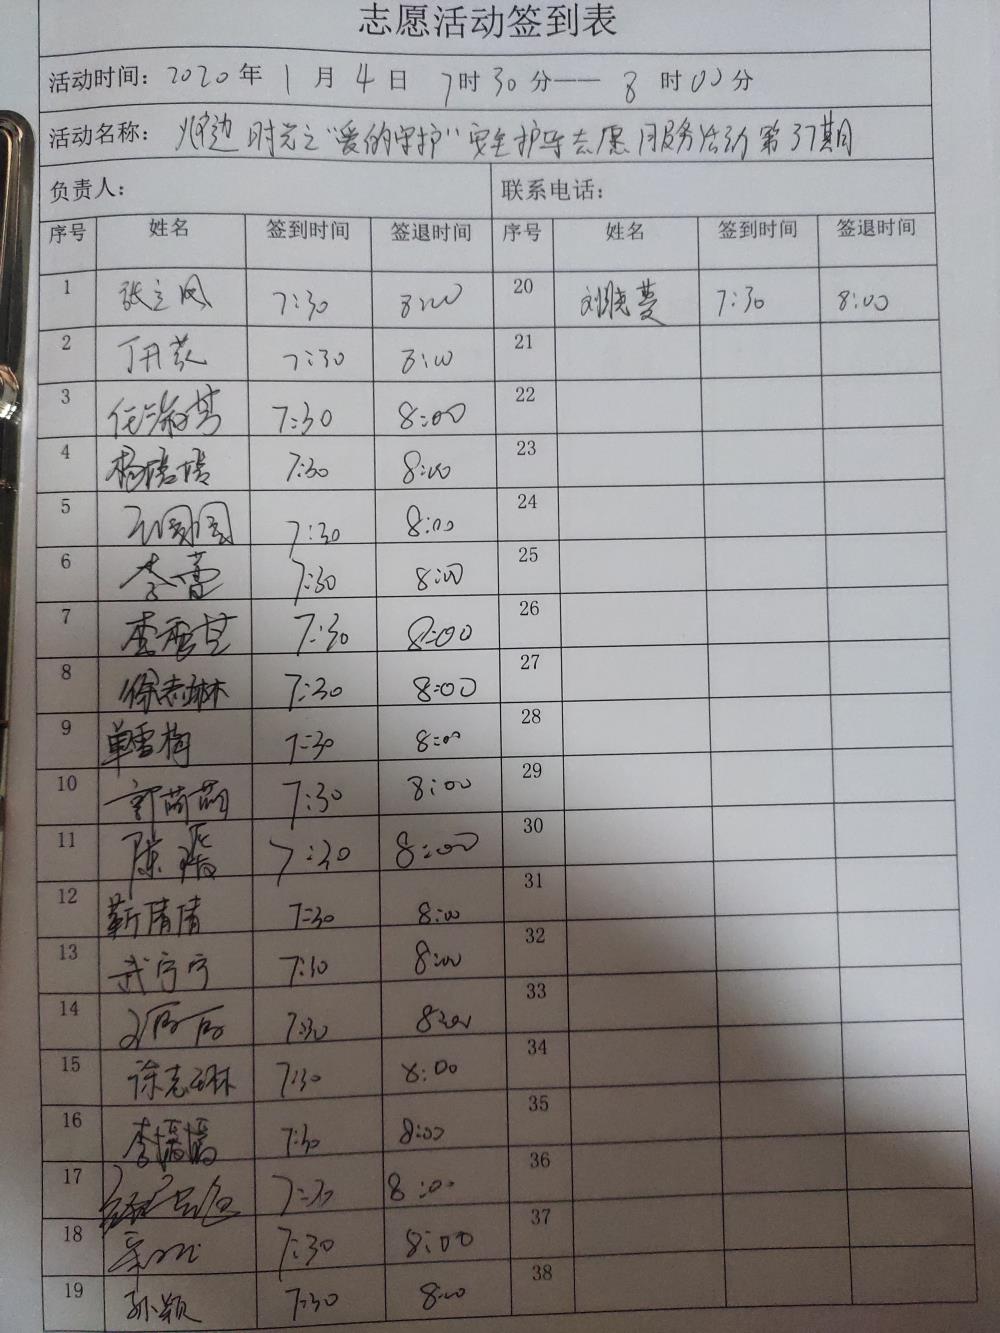 志愿活动签到表
活动时间：2020年 1月 4日 7时30分—— 8时00分
活动名称： 边时光之"爱的守护"安全护导志愿服务活动第37期
负责人： 联系电话：
序号 姓名 签到时间 签退时间 序号 姓名 签到时间 签退时间
1 张立凤 7:30 8:00 20 刘晓蔓 7:30 8:00
2 7:30 8:00 21
3 7:30 8:00 22
4 杨培培 7:30 8:00 23
5 7:30 8:00 24
6 李蕾 7:30 8:00 25
7 7:30 8:00 26
8 徐志琳 7:30 8:00 27
9 单雪梅 7:30 8:00 28
10 郭萌萌 7:30 8:00 29
11 7:30 8:00 30
12 靳倩倩 7:30 8:00 31
13 武宁宁 7:30 8:00 32
14 7:30 8:00 33
15 徐志琳 7:30 8:00 34
16 7:30 8:00 35
17 7:30 8:00 36
18 7:30 8:00 37
19 孙颖 7:30 8:00 38